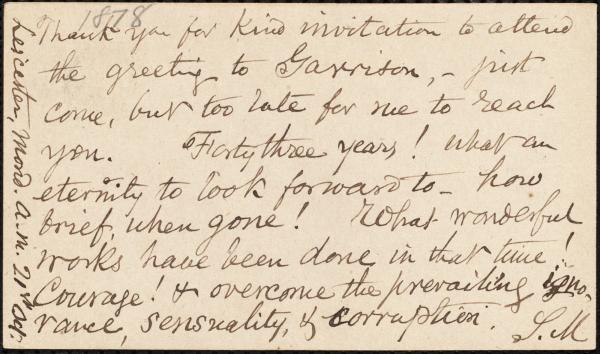 1878
Thank you for kind invitation to attend
the greeting to Garrison, – just
come, but too late for me to reach
you. Forty three years! what an
eternity to look forward to – how
brief, when gone! What wonderful
works have been done in that time!
Courage! & overcome the prevailing igno-
rance, sensuality, & corruption.
S. M
Leicester, Mond. A.M. 21st Oct.